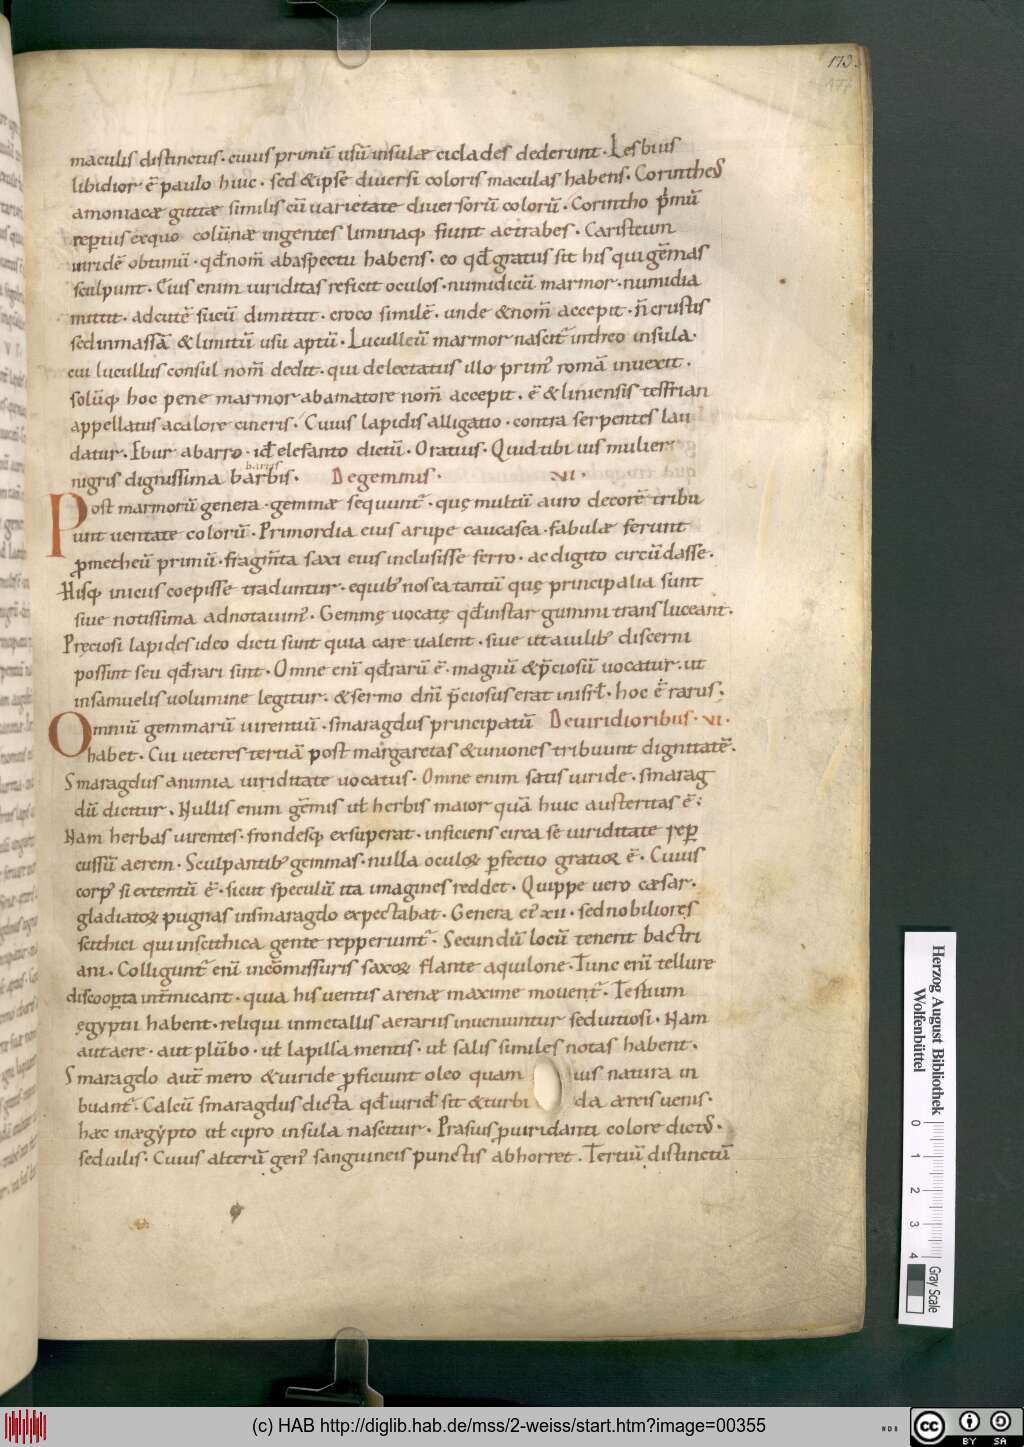 173
maculis distinctus. cuius primū usū insulæ ciclades dederunt. Lesbius
libidior ē paulo huic. sed & ipse diuersi coloris maculas habens. Corintheꝰ
amoniacæ guttæ similis cū uarietate diuersorū colorū. Corintho p̄mū
reptus exquo colūnæ ingentes liminaq; fiunt ac trabes. Caristeum
uiridē obtimū. qđ nom̄ abaspectu habens. eo qđ gratus sit his qui gēmas
sculpunt. Eius enim uiriditas reficit oculos. numidicū marmor. numidia
mittit. adcutē sucū dimittit. croco similē. unde & nom̄ accepit. n̄ crustis
sedinmassā & limitū usu aptū. Luculleū marmor nascit᷑ intheo insula.
cui lucullus consul nom̄ dedit. qui delectatus illo primꝰ romā inuexit.
solūq; hoc pene marmor abamatore nom̄ accepit. ē & liniensis tesfrian
appellatus acalore cineris. Cuius lapidis alligatio. contra serpentes lau
datur. Ebur abarro. id elefanto dictū. Oratius. Quid tibi uis mulier
nigris dignissima barbis. barris Degemmis. VI.
Post marmorū genera. gemmæ sequunt᷑. quę multū auro decorē tribu
unt uenitate colorū. Primordia eius arupe caucasea. fabulæ ferunt
ꝓmetheū primū. fragm̄ta saxi eius inclusisse ferro. ac digito circūdasse.
Hisq; iniciis coepisse traduntur. equibꝰ nos ea tantū quę principalia sunt
siue notissima adnotauimꝰ. Gemmę uocatę qđ instar gummi transluceant.
Pręciosi lapides ideo dicti sunt quia care ualent. siue ut auilibꝰ discerni
possint seu qđ rari sint. Omne enī qđ rarū ē. magnū & p̄ciosū uocatur. ut
insamuelis uolumine legitur. & sermo dn̄i p̄ciosus erat inisrł. hoc ē rarus.
Omniū gemmarū uirentiū. smaragdus principatū Deuiridioribus. VI.
habet. Cui ueteres tertiā post margaretas & uniones tribuunt dignitatē.
Smaragdus animia uiriditate uocatus. Omne enim satis uiride. smarag
dū dicitur. Nullis enim gēmis uł herbis maior quā huic austeritas ē;
Nam herbas uirentes. frondesq; exsuperat. inficiens circa se uiriditate reꝑ
cussū aerem. Sculpantibꝰ gemmas. nulla oculoꝝ ꝑfectio gratioꝝ ē. Cuius
corpꝰ si extentū ē. sicut speculū ita imagines reddet. Quippe uero cæsar.
gladiatoꝝ pugnas insmaragdo expectabat. Genera eiꝰ xii. sed nobiliores
scithici qui inscithica gente repperiunt᷑. Secundū locū tenent bactri
ani. Colligunt᷑ enī incōmissuris saxoꝝ flante aquilone. Tunc enī tellure
discooꝑta int̄micant. quia his uentis arenæ maxime mouent᷑. Testium
ęgyptii habent. reliqui inmetallis aerariis inueniuntur sed uitiosi. Nam
aut aere. aut plūbo. uł lapilla mentis. uł salis similes notas habent.
Smaragdo aut̄ mero & uiride ꝓficiunt oleo quam uis natura in
buant᷑. Calcū smaragdus dicta qđ uiridꝰ sit & turbi da æreis uenis.
hæc inægypto uł cipro insula nascitur. Prasius ꝓuiridanti colore dictꝰ.
sed uilis. Cuius alterū genꝰ sanguineis punctis abhorret. Tertiū distinctū
Herzog August Bibliothek
Wolfenbüttel
0 1 2 3 4
Gray Scale
(c) HAB http://diglib.hab.de/mss/2-weiss/start.htm?image=00355
cc BY SA